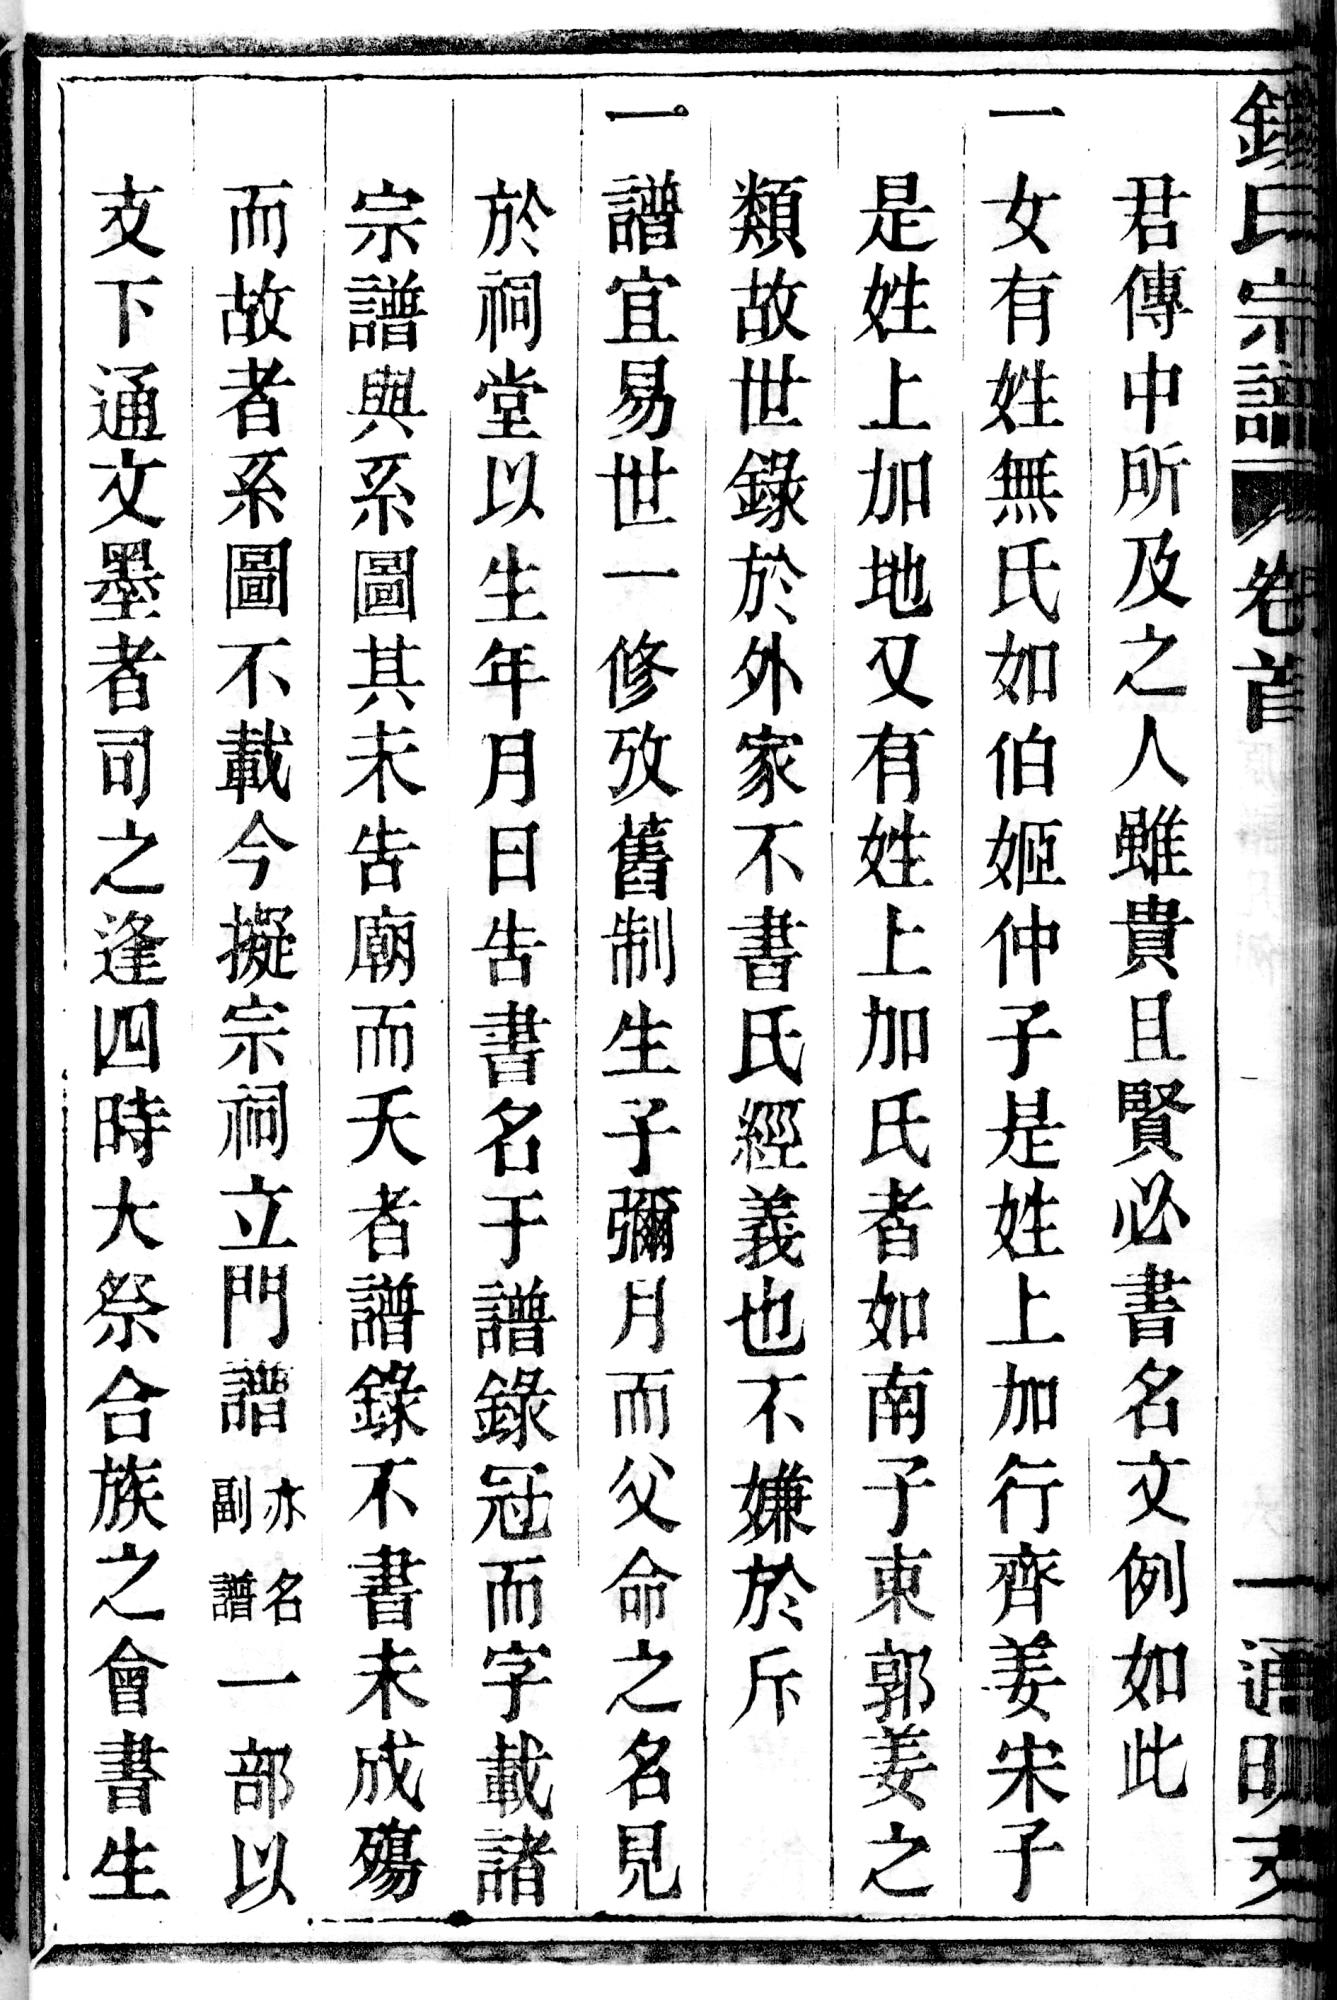 氏宗譜 卷首 一 通明支
君傳中所及之人雖貴且賢必書名文例如此
一女有姓無氏如伯姬仲子是姓上加行齊姜宋子
是姓上加地又有姓上加氏者如南子東郭姜之
類故世錄於外家不書氏經義也不嫌於斥
一譜宜易世一修攷舊制生子彌月而父命之名見
於祠堂以生年月日告書名于譜錄冠而字載諸
宗譜與系圖其未告廟而夭者譜錄不書未成殤
而故者系圖不載今擬宗祠立門譜亦名副譜一部以
支下通文墨者司之逢四時大祭合族之會書生